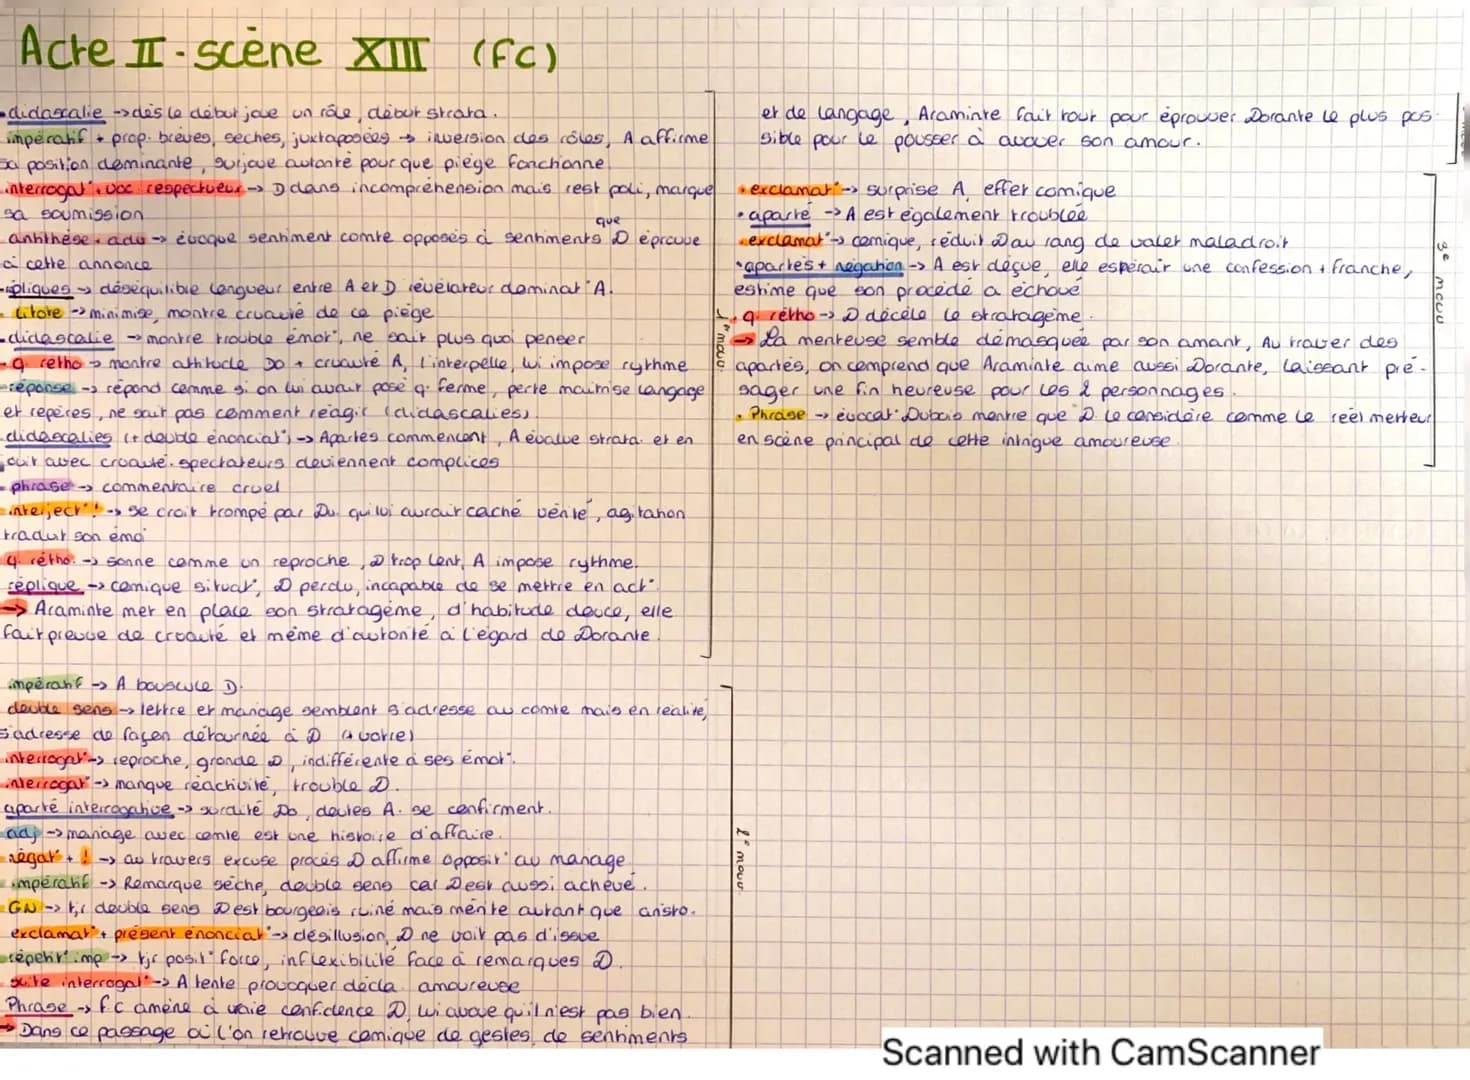 Acte II - scène XIII (fc)
didascalie -> dès le début joue un rôle, début strata.
impératif + prop. brèves, sèches, juxtaposées -> inversion des rôles, A affirme
sa position dominante, surjoue autorité pour que piège fonctionne
interrogat° + voc respectueux -> D dans incompréhension mais rest poli, marque
sa soumission
antithèse + adv -> évoque sentiment comte opposés à sentiments que D éprouve
à cette annonce
répliques -> déséquilibre longueur entre A et D révélateur dominat° A.
litote -> minimise, montre cruauté de ce piège
didascalie -> montre trouble émot°, ne sait plus quoi penser
q rétho -> montre attitude Do + cruauté A, l'interpelle, lui impose rythme
réponse -> répond comme si on lui avait posé q. ferme, perte maitrise langage
et repères, ne sait pas comment réagir (didascalies).
didascalies (+ double énonciat°) -> Apartés commencent, A évalue strata. et en
jouit avec cruauté. spectateurs deviennent complices
phrase -> commentaire cruel
interject° ! -> se croit trompé par Du. qui lui aurait caché vérité, agitation
traduit son émoi
q. rétho. -> sonne comme un reproche, D trop lent, A impose rythme.
réplique -> comique situat°, D perdu, incapable de se mettre en act°
-> Araminte met en place son stratagème, d'habitude douce, elle
fait preuve de cruauté et même d'autorité à l'égard de Dorante.
1er mouv.
impératif -> A bouscule D.
double sens -> lettre et mariage semblent s'adresse au comte mais en réalité,
s'adresse de façon détournée à D (à votre)
interrogat° -> reproche, gronde D, indifférente à ses émot°.
interrogat° -> manque réactivité, trouble D.
aparté interrogative -> surdité Do, doutes A. se confirment.
adj -> mariage avec comte est une histoire d'affaire.
négat° + ! -> au travers excuse procès D affirme opposit° au mariage
impératif -> Remarque sèche, double sens car D est aussi achevé.
GN -> tjr double sens D est bourgeois ruiné mais mérite autant que aristo.
exclamat° + présent énonciat° -> désillusion, D ne voit pas d'issue
répétit° imp -> tjr posit° force, inflexibilité face à remarques D.
suite interrogat° -> A tente provoquer décla. amoureuse
Phrase -> f.c amène à vraie confidence D, lui avoue qu'il n'est pas bien.
-> Dans ce passage où l'on retrouve comique de gestes, de sentiments
2e mouv.
et de langage, Araminte fait tout pour éprouver Dorante le plus pos-
sible pour le pousser à avouer son amour.
exclamat° -> surprise A, effet comique
aparté -> A est également troublée
exclamat° -> comique, réduit D au rang de valet maladroit
apartés + négation -> A est déçue, elle espérait une confession + franche,
estime que son procédé a échoué
q. rétho -> D décèle le stratagème.
-> La menteuse semble démasquée par son amant, Au traver des
apartés, on comprend que Araminte aime aussi Dorante, laissant pré-
sager une fin heureuse pour les 2 personnages.
Phrase -> évocat° Dubois montre que D. le considère comme le réel metteur
en scène principal de cette intrigue amoureuse.
3e mouv
Scanned with CamScanner